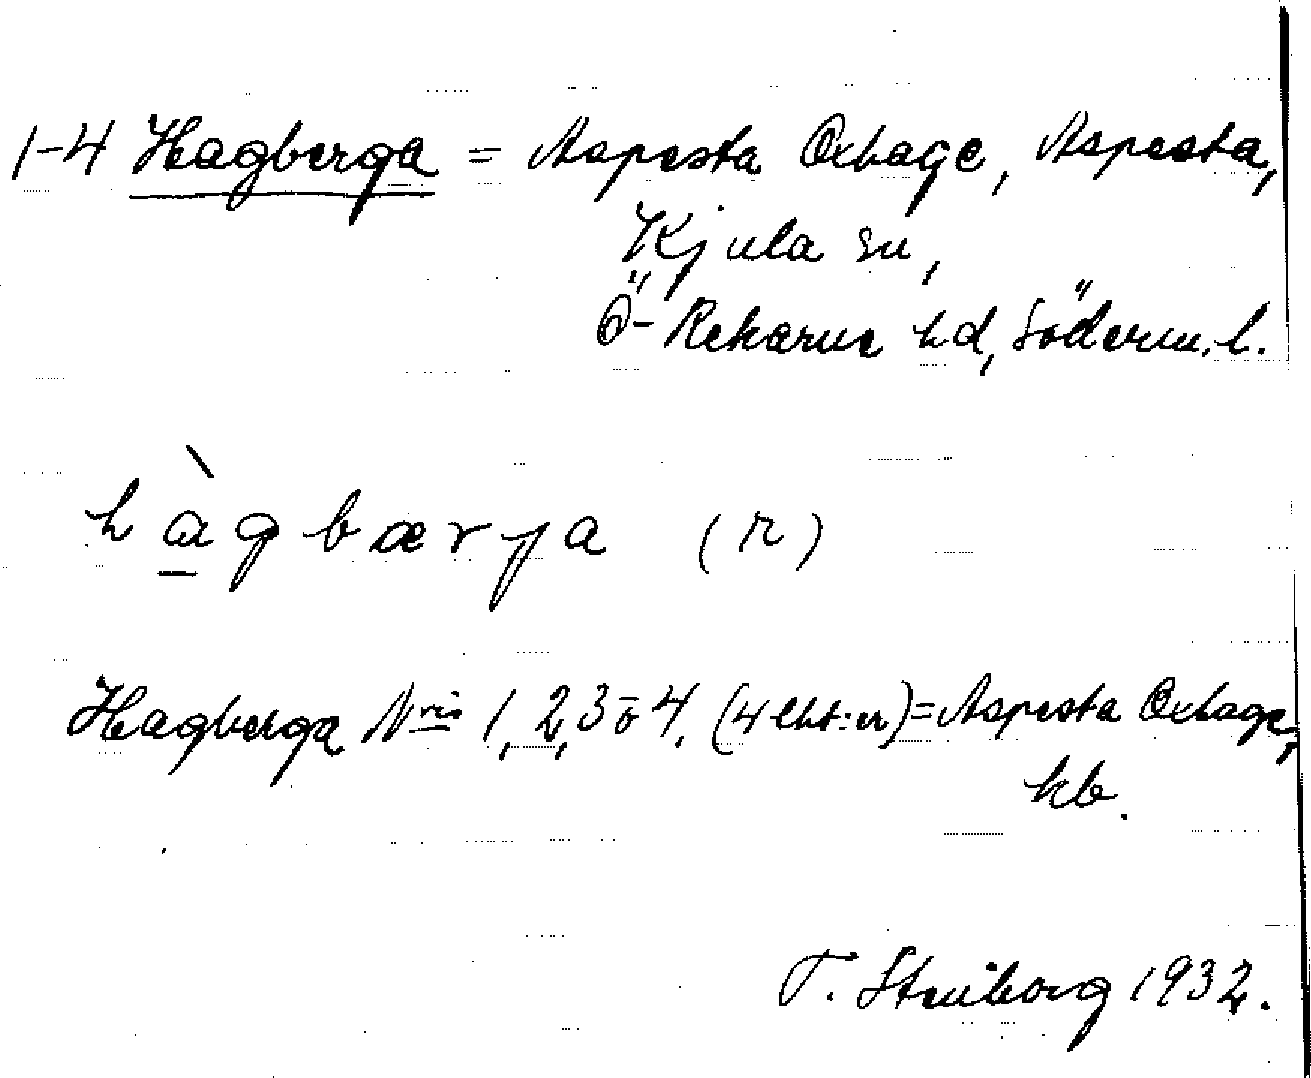 1-4 Hagberga = Aspesta Oxhage, Aspesta,
Kjula sn,
Ö-Rekarne hd, Söderm. l.
hàgbærja (n)
Hagberga Nris 1, 2, 3 o 4. (4 lht:er) = Aspesta Oxhage,
kb.
T. Stenborg 1932.